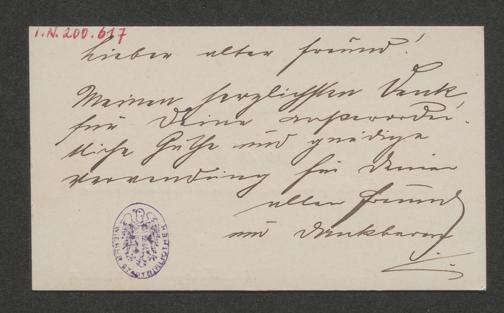 I.N. 200.617
Lieber alter Freund!
Meinen herzlichsten Dank
für Deine außerordent-
liche Güthe und gnädige
Verwendung für Deinen
alten Freund
und dankbaren
WIENER STADTBIBLIOTHEK